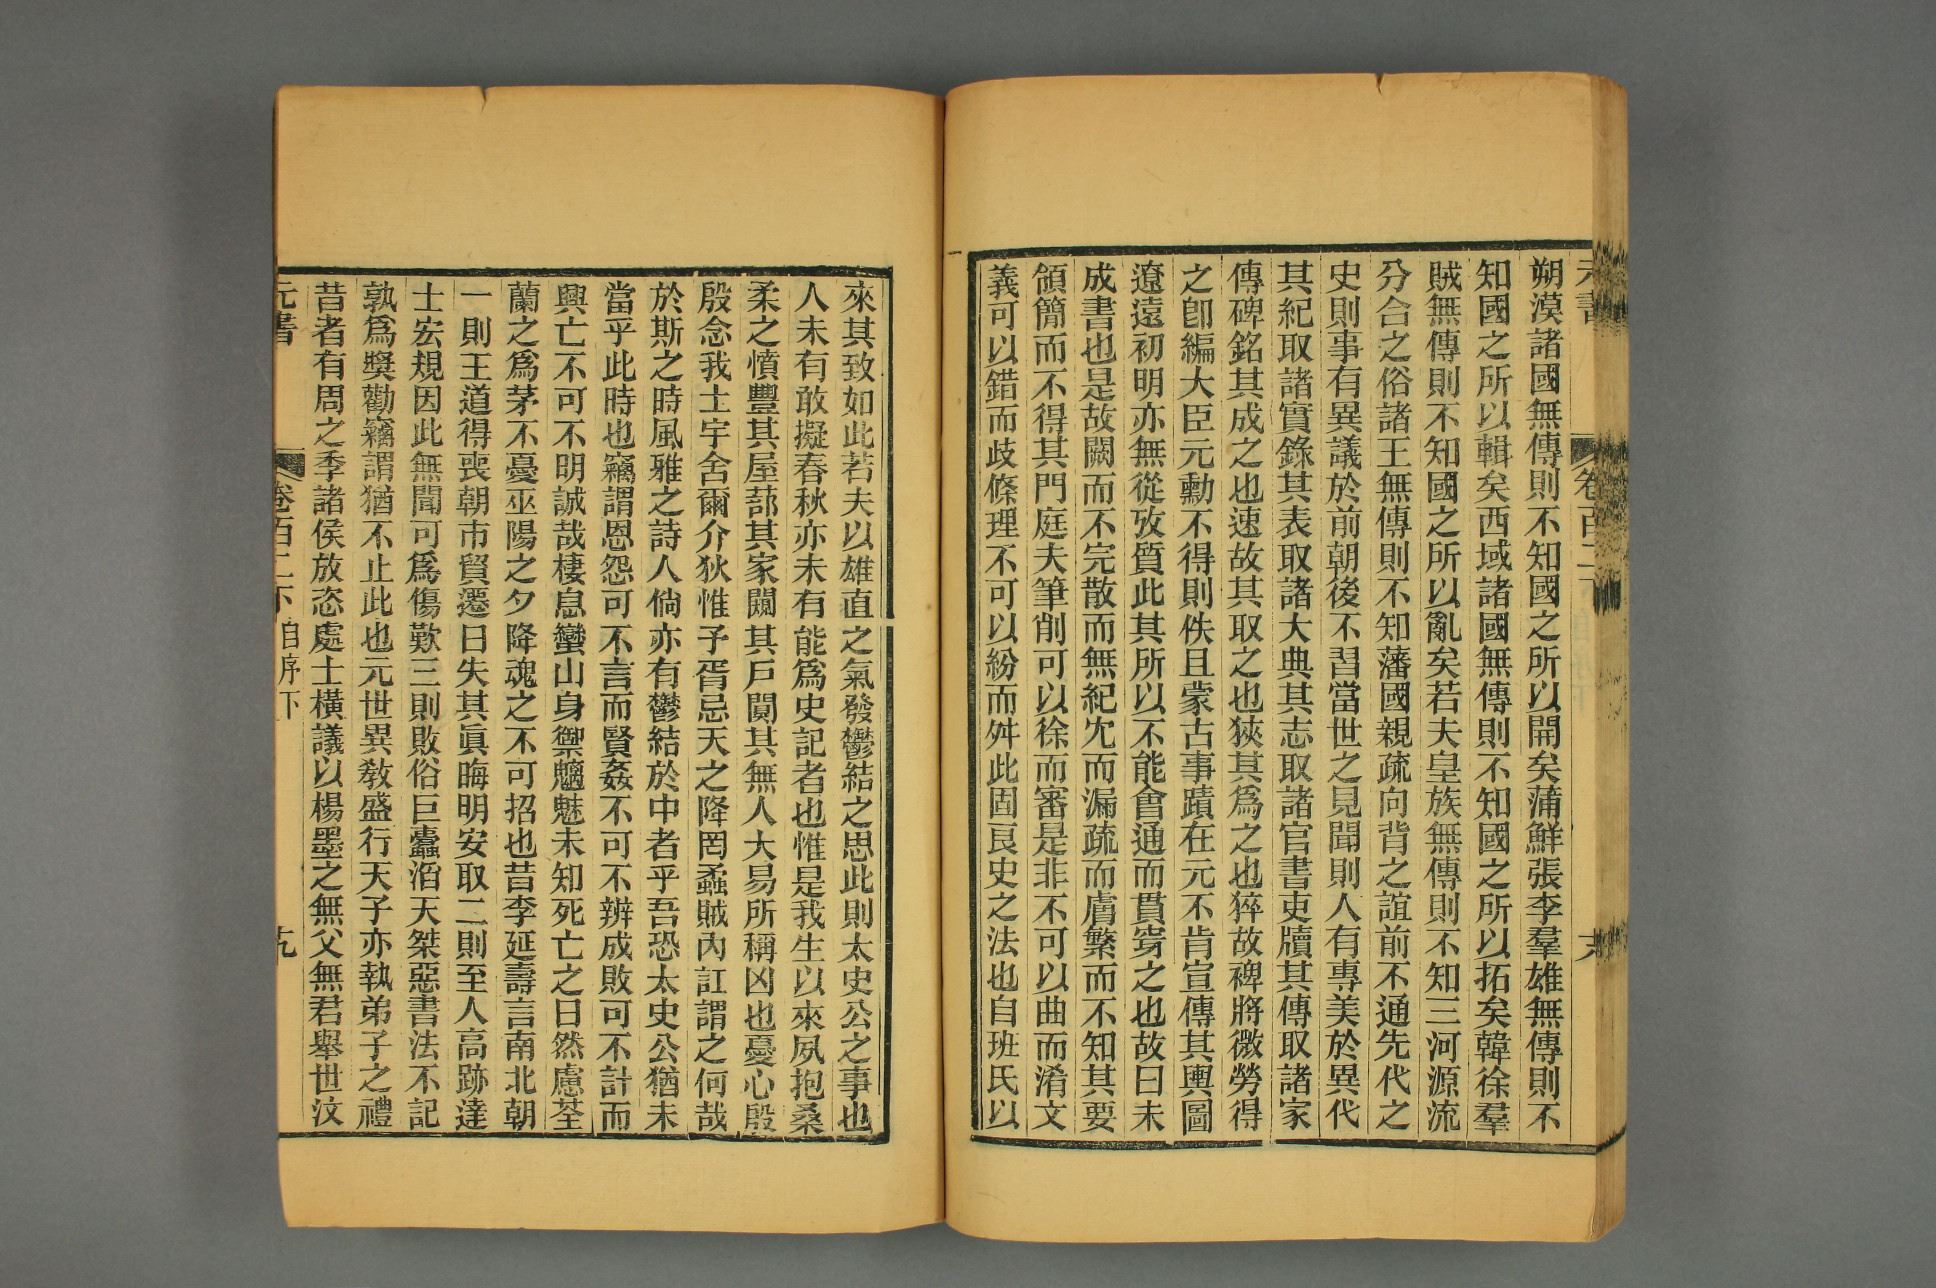 元書 卷百二 十八
朔漠諸國無傳則不知國之所以開矣蒲鮮張李羣雄無傳則不
知國之所以輯矣西域諸國無傳則不知國之所以拓矣韓徐羣
賊無傳則不知國之所以亂矣若夫皇族無傳則不知三河源流
分合之俗諸王無傳則不知藩國親疏向背之誼前不通先代之
史則事有異議於前朝後不習當世之見聞則人有專美於異代
其紀取諸實錄其表取諸大典其志取諸官書吏牘其傳取諸家
傳碑銘其成之也速故其取之也狹其爲之也猝故稗將微勞得
之卽編大臣元勳不得則佚且蒙古事蹟在元不肯宣傳其輿圖
遼遠初明亦無從攷質此其所以不能會通而貫穿之也故曰未
成書也是故闕而不完散而無紀冘而漏疏而膚繁而不知其要
領簡而不得其門庭夫筆削可以徐而審是非不可以曲而淆文
義可以錯而歧條理不可以紛而舛此固良史之法也自班氏以
來其致如此若夫以雄直之氣發鬱結之思此則太史公之事也
人未有敢擬春秋亦未有能爲史記者也惟是我生以來夙抱桑
柔之憤豐其屋蔀其家闚其戶闃其無人大易所稱凶也憂心殷
殷念我土宇舍爾介狄惟予胥忌天之降罔蟊賊內訌謂之何哉
於斯之時風雅之詩人倘亦有鬱結於中者乎吾恐太史公猶未
當乎此時也竊謂恩怨可不言而賢姦不可不辨成敗可不計而
興亡不可不明誠哉棲息蠻山身禦魑魅未知死亡之日然慮荃
蘭之爲茅不憂巫陽之夕降魂之不可招也昔李延壽言南北朝
一則王道得喪朝市貿遷日失其眞晦明安取二則至人高跡達
士宏規因此無聞可爲傷歎三則敗俗巨蠹滔天桀惡書法不記
孰爲獎勸竊謂猶不止此也元世異敎盛行天子亦執弟子之禮
昔者有周之季諸侯放恣處士橫議以楊墨之無父無君舉世汶
元書 卷百二下 自序下 十九